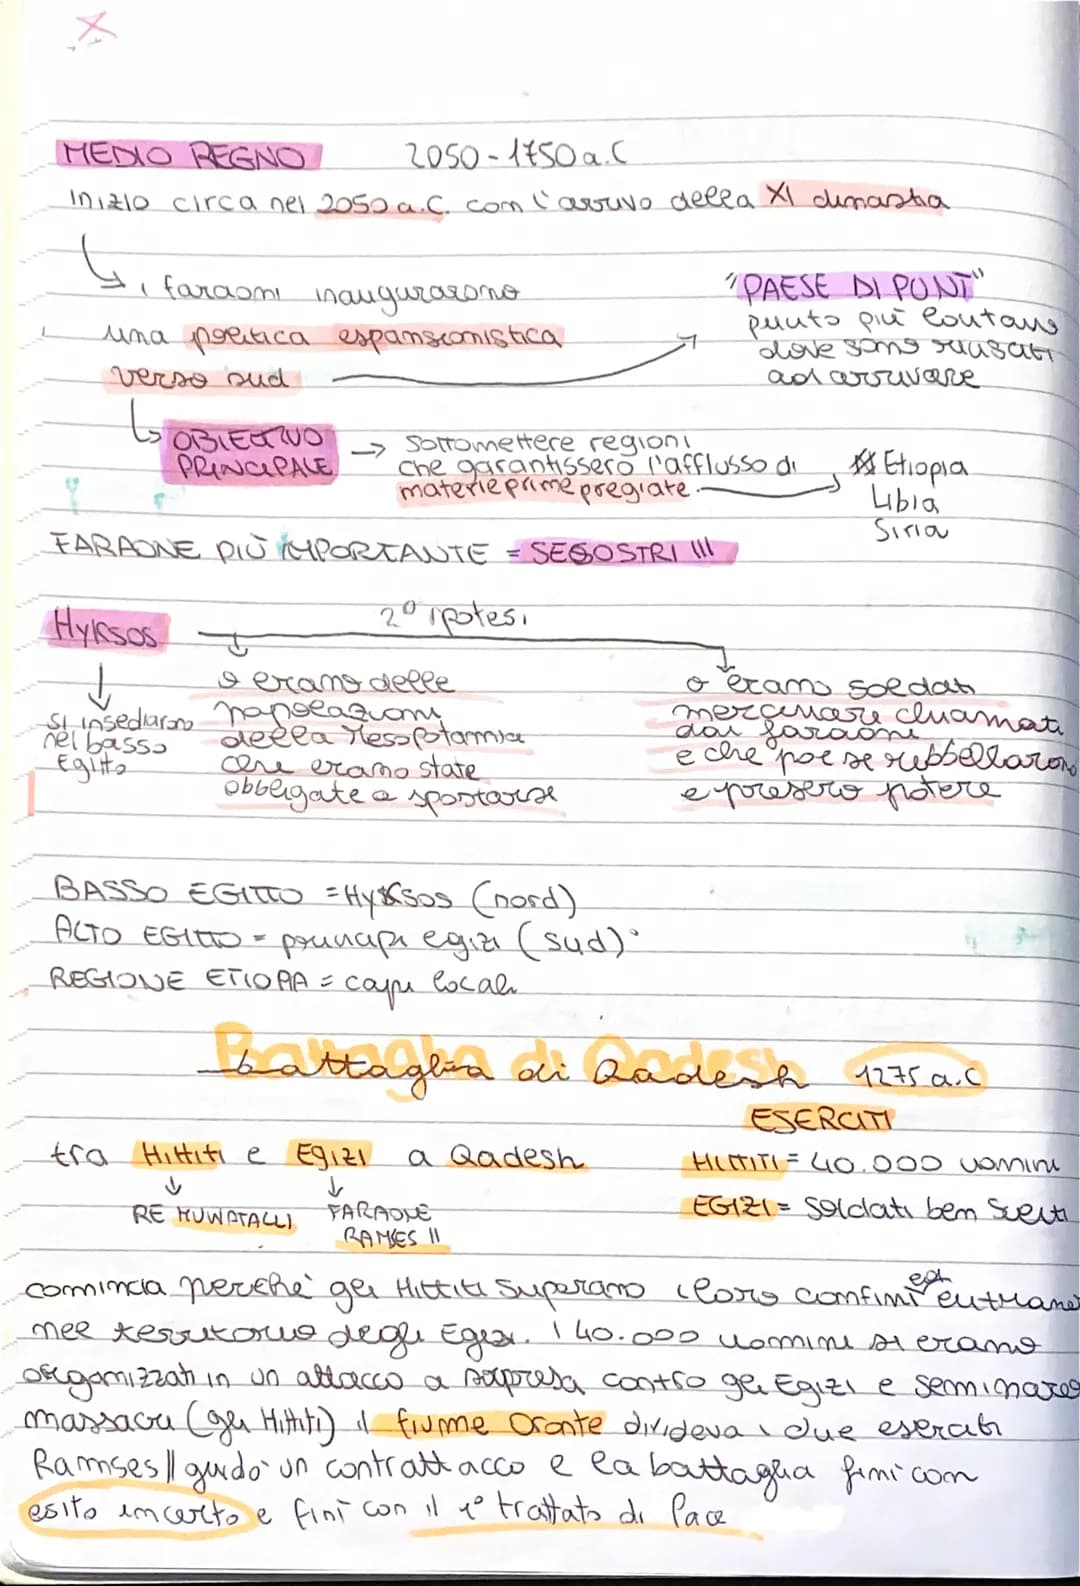 MEDIO REGNO 2050-1750 a.C
Inizio circa nel 2050 a.C. com l'arrivo della XI dinastia
i faraoni inaugurarono
una politica espansionistica
verso sud
"PAESE DI PUNT"
punto più lontano
dove sono riusciti
ad arrivare
OBIETTIVO
PRINCIPALE
→ Sottomettere regioni
che garantissero l'afflusso di
materie prime pregiate
Etiopia
Libia
Siria
FARAONE PIÙ IMPORTANTE = SESOSTRI III
Hyksos
2° ipotesi
si insediarono
nel basso
Egitto
o erano delle
popolazioni
della Mesopotamia
che erano state
obbligate a spostarse
o erano soldati
mercenare chiamati
dai faraoni
e che poi se rebbellarono
e presero potere
BASSO EGITTO = Hyksos (nord)
ALTO EGITTO = principi egizi (sud)
REGIONE ETIOPIA = capi locali
Battaglia di Qadesh 1275 a.C
ESERCITI
tra Hittiti e Egizi a Qadesh
RE MUWATALLI
FARAONE
RAMSES II
HITTITI = 40.000 uomini
EGIZI = Soldati bem Scelti
comincia perché gli Hittiti Superano i loro confini ed entrano
nel territorio degli Egizi. I 40.000 uomini si erano
organizzati in un attacco a sorpresa contro gli Egizi e seminarono
massacri (gli Hittiti) il fiume Oronte divideva i due eserciti
Ramses II guidò un contrattacco e la battaglia finì com
esito incerto e finì con il 1° trattato di Pace